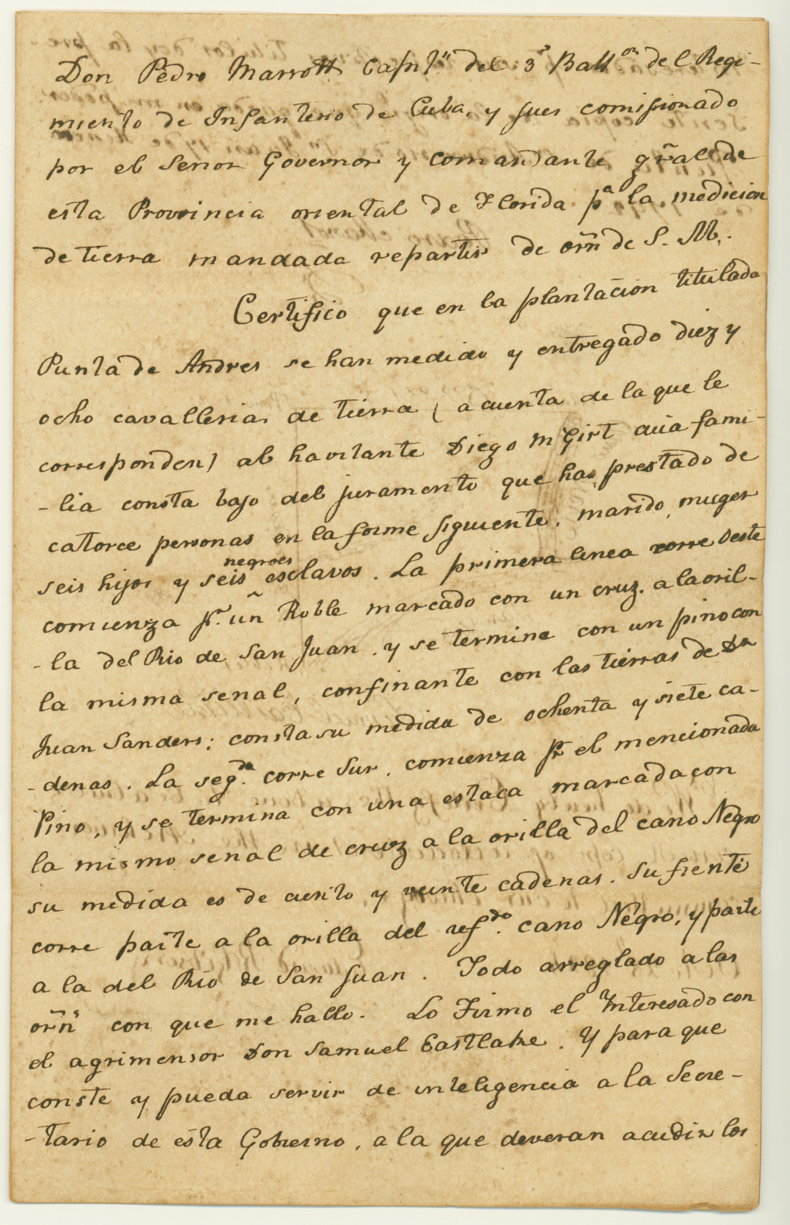 Don Pedro Marrott Capn. del 3º Batton. de el Regi-
miento de Infanteria de Cuba, y jues comisionado
por el Señor Governor y Comandante gral. de
esta Provincia oriental de Florida pa. la medicion
de tierra mandada repartir de orn. de S. M.
Certifico que en la plantacion titulada
Punta de Andres se han medido y entregado diez y
ocho cavallerias de tierra (a cuenta de la que le
corresponden) al havitante Diego McGirt cuia fami-
-lia consta bajo del juramento que has prestado de
catorce personas en la forme siguiente, marido, muger
seis hijos y seis negroes esclavos. La primera linea corre Oeste
comienza pr. un Roble marcado con un cruz. a la oril-
-la del Rio de San Juan. y se termine con un pino con
la misma senal, confinante con las tierras de Dn
Juan Sanders; consta su medida de ochenta y siete ca-
-denas. La segda. corre Sur. comienza pr. el mencionada
Pino, y se termina con una estaca marcada con
la mismo senal de cruz a la orilla del cano Negro
su medida es de ciento y veinte cadenas. Su frente
corre parte a la orilla del refdo. cano Negro, y parte
a la del Rio de San Juan. Todo arreglado a las
orns. con que me hallo. Lo Firmo el Interesado con
el agrimensor Don Samuel Eastlake. Y para que
conste y pueda servir de inteligencia a la Secre-
-tario de esta Gobierno, a la que deveran acudir los